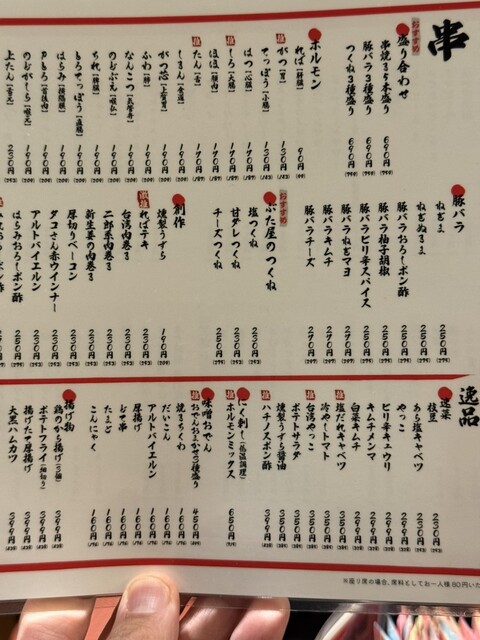 串
おすすめ
盛り合わせ
串焼き5本盛り 690円
豚バラ3種盛り 690円
つくね3種盛り 690円
ホルモン
ればぁ【肝臓】 90円
がつ【胃】 130円
てっぽう【小腸】 130円
はつ【心臓】 170円
しろ【大腸】 170円
ほほ【頬肉】 170円
たん【舌】 170円
しきん【食道】 190円
がつ芯【上質胃】 190円
ふわ【肺】 190円
なんこつ【気管軟骨】 190円
のどぶえ【喉仏】 190円
ちれ【脾臓】 190円
もろてっぽう【直腸】 190円
はらみ【横隔膜】 190円
Pとろ【首後肉】 190円
のどがしら【喉元】 190円
上たん【舌元】 230円
豚バラ
ねぎま 250円
ねぎぬるま 250円
豚バラおろしポン酢 250円
豚バラ柚子胡椒 250円
豚バラピリ辛スパイス 270円
豚バラねぎマヨ 270円
豚バラキムチ 270円
豚バラチーズ 270円
おすすめ
ぶた屋のつくね
塩つくね 230円
甘ダレつくね 230円
チーズつくね 250円
創作
燻製うずら 190円
ればテキ 230円
台湾肉巻き 230円
二郎系肉巻き 230円
新生姜の肉巻き 230円
厚切りベーコン 230円
タコさん赤ウインナー 230円
アルトバイエルン 230円
はらみおろしポン酢 250円
逸品
逸菜
枝豆 230円
あら塩キャベツ 230円
やっこ 299円
ピリ辛キュウリ 299円
キムチメンマ 299円
白菜キムチ 299円
塩だれキャベツ 350円
冷やしトマト 350円
台湾やっこ 350円
ポテトサラダ 350円
燻製うずら醤油 350円
ハチノスポン酢 399円
にく刺し(低温調理)
ホルモンミックス 650円
味噌おでん
おでんおまかせ3種盛り 450円
焼きちくわ 160円
だいこん 160円
アルトバイエルン 160円
厚揚げ 160円
どて串 160円
たまご 160円
こんにゃく 160円
揚げ物
鶏のから揚げ(5個) 399円
ポテトフライ(細切り) 399円
揚げたて厚揚げ 399円
大黒ハムカツ 399円
※座り席の場合、席料としてお一人様80円いた